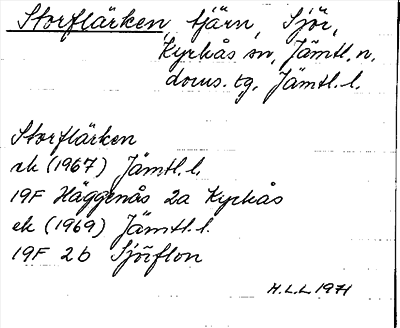 Storflärken, tjärn, Sjör,
Kyrkås sn, Jämtl. n.
doms. tg, Jämtl. l.
Storflärken
rk (1967) Jämtl. l.
19F Häggenås 2a Kyrkås
ek (1969) Jämtl. l.
19F 2b Sjörflon
H.L.L 1971